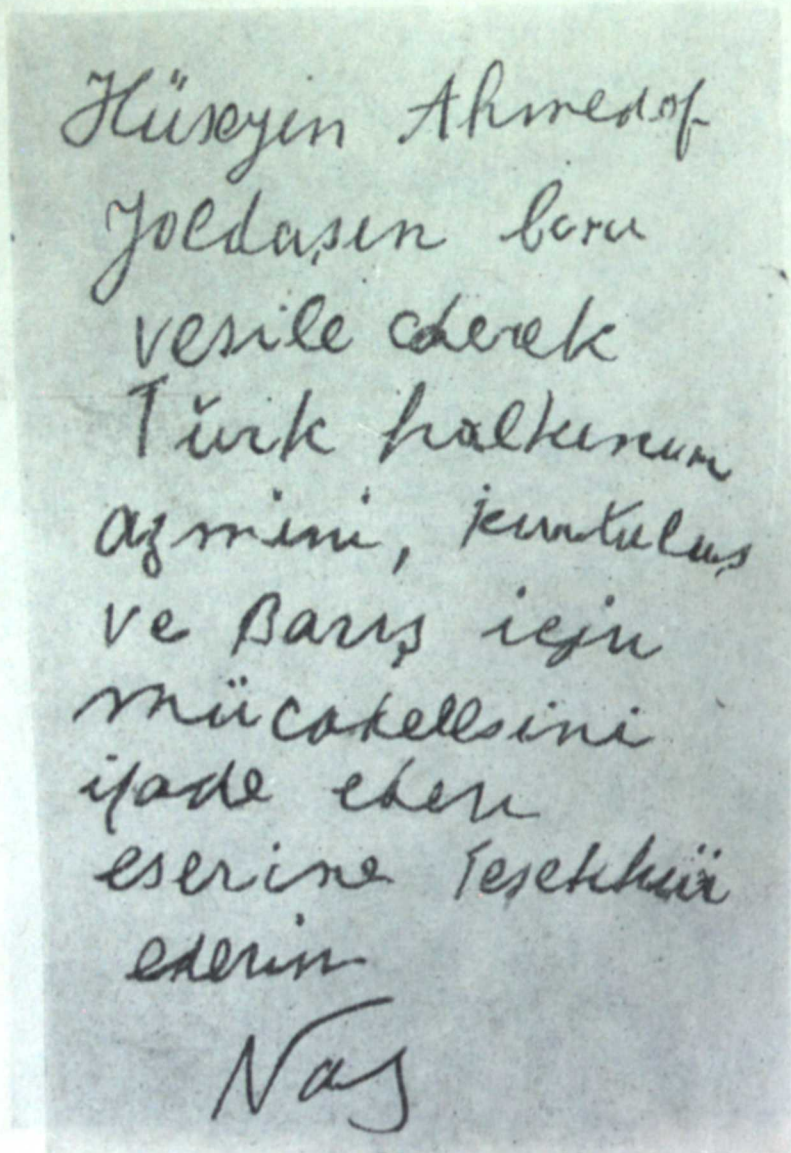 Hüseyin Ahmedof
Yoldaşın beni
vesile ederek
Türk halkının
azmini, kurtuluş
ve Barış için
mücadellsini
ifade eden
eserine Teşekkür
ederim